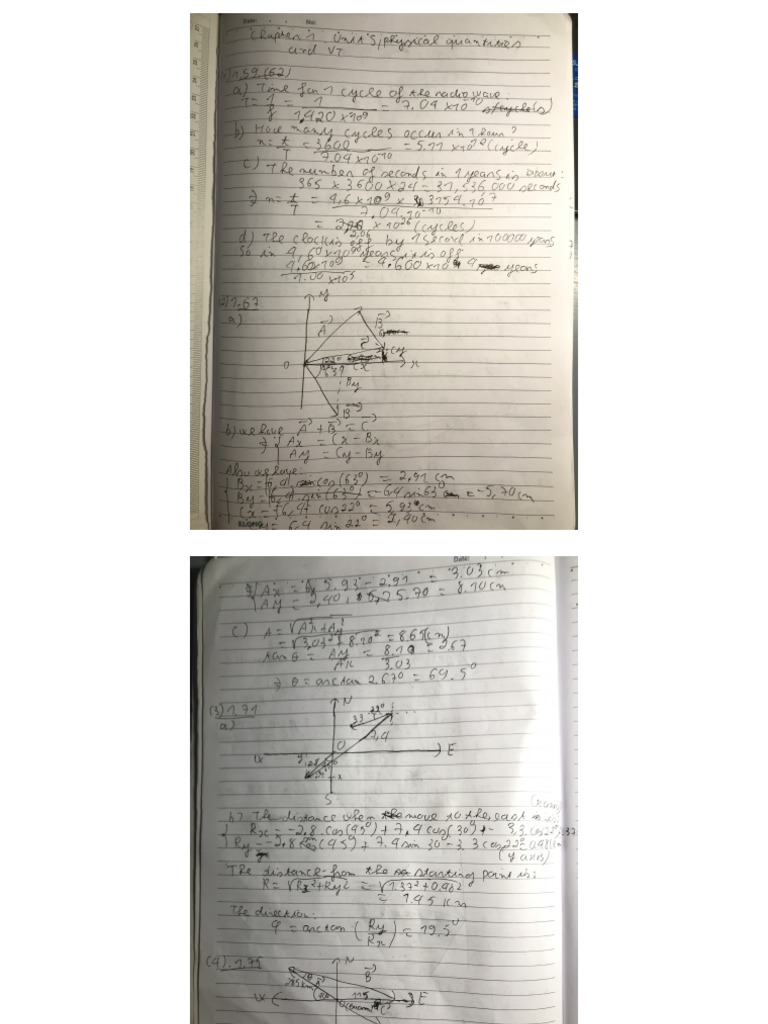 Date: No:
Chapter 1: Units, physical quantities
and VT
(1) 1.59 (62)
a) Time for 1 cycle of the radio wave:
T = 1/f = 1/1,420 × 10^9 = 7.04 × 10^-10 (s)
b) How many cycles occur in 1 hour?
n = t/T = 3600/7.04 × 10^-10 = 5.11 × 10^12 (cycle)
c) The number of seconds in 1 years is about:
365 × 3600 × 24 = 31,536,000 seconds
=> n = t/T = 4,6 × 10^9 × 3,154.10^7/7,04.10^-10
= 2,06 × 10^26 (cycles)
d) The clock is off by 1 second in 100000 years
So in 4,60 × 10^9 years it is off
4,60×10^9/1.00 ×10^5 = 4,600×10^4
years
(2) 1.67
a)
y
A
B
C
Cy
0
22°
63°
Cx
x
By
B
b) we have A + B = C
=> Ax = Cx - Bx
Ay = Cy - By
Also we have:
Bx = 6,4 cos(63°) = 2,91 cm
By = 6,4 sin(63°) = -6,4 sin 63° = -5,70 cm
Cx = +6,4 cos 22° = 5,93 cm
6,4 sin 22° = 2,40 cm
KLONG
Date:
=> Ax = 5.93 - 2.91 = 3.03 cm
Ay = 2,40 5.70 = 8.10 cm
c) A = √Ax² + Ay²
= √3,03² + 8.10² = 8.65 (cm)
tan θ = Ay/Ax = 8.10/3.03 = 2.67
=> θ = arctan 2.67° = 69.5°
(3) 1.71
a)
N
22°
3.3
7,4
O
W
E
2,8
45°
S
b) The distance when move to the east
(x axis)
Rx = -2,8 cos(45°) + 7,4 cos(30°) - 3,3 cos 22° 1.37
Ry = -2,8 (45°) + 7.4 sin 30° - 3.3 cos 22°
(y axis)
The distance from the starting point is:
R = √Rx² + Ry² = √1.37² + 0.96²
= 1.45 km
The direction:
φ = arctan (Ry/Rx) = 19.5°
(4). 1.75
N
B
A
W
E